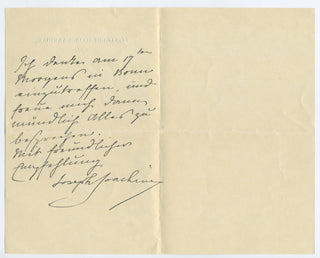 Ich denke am 17ten
Morgens in Bonn
einzutreffen, und
freue mich dann
mündlich Alles zu
besprechen.
Mit freundlicher
Empfehlung
Joseph Joachim